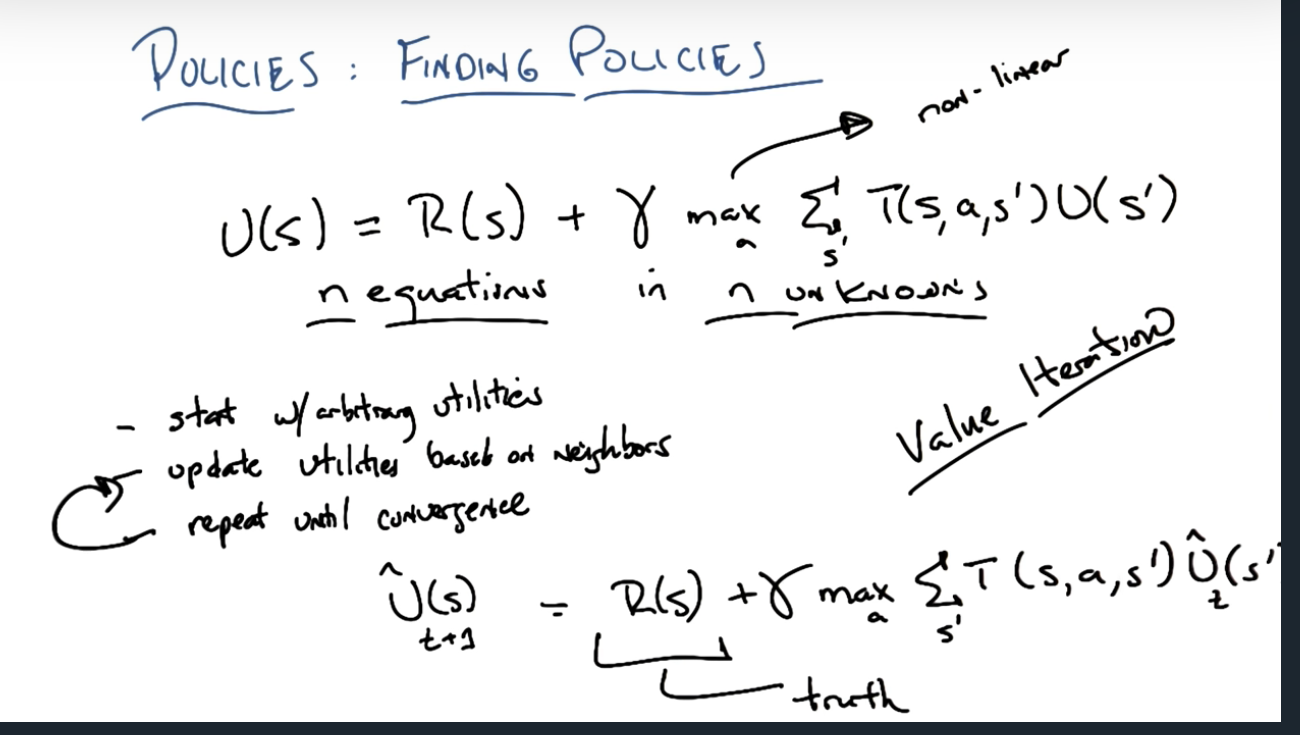 POLICIES: FINDING POLICIES
non-linear
U(s) = R(s) + γ max_a Σ_s' T(s,a,s') U(s')
n equations in n unknowns
Value Iteration
- start w/ arbitrary utilities
- update utilities based on neighbors
- repeat until convergence
Û_t+1(s) = R(s) + γ max_a Σ_s' T(s,a,s') Û_t(s'
truth